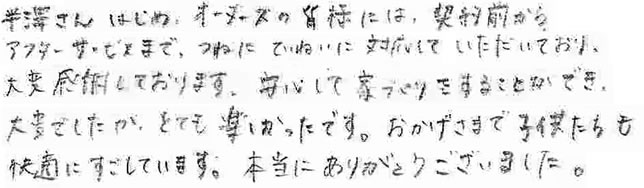 半澤さんはじめ、オーナーズの皆様には、契約前から
アフターサービスまで、つねにていねいに対応していただいており、
大変感謝しております。安心して家づくりをすることができ、
大変でしたが、とても楽しかったです。おかげさまで子供たちも
快適にすごしています。本当にありがとうございました。